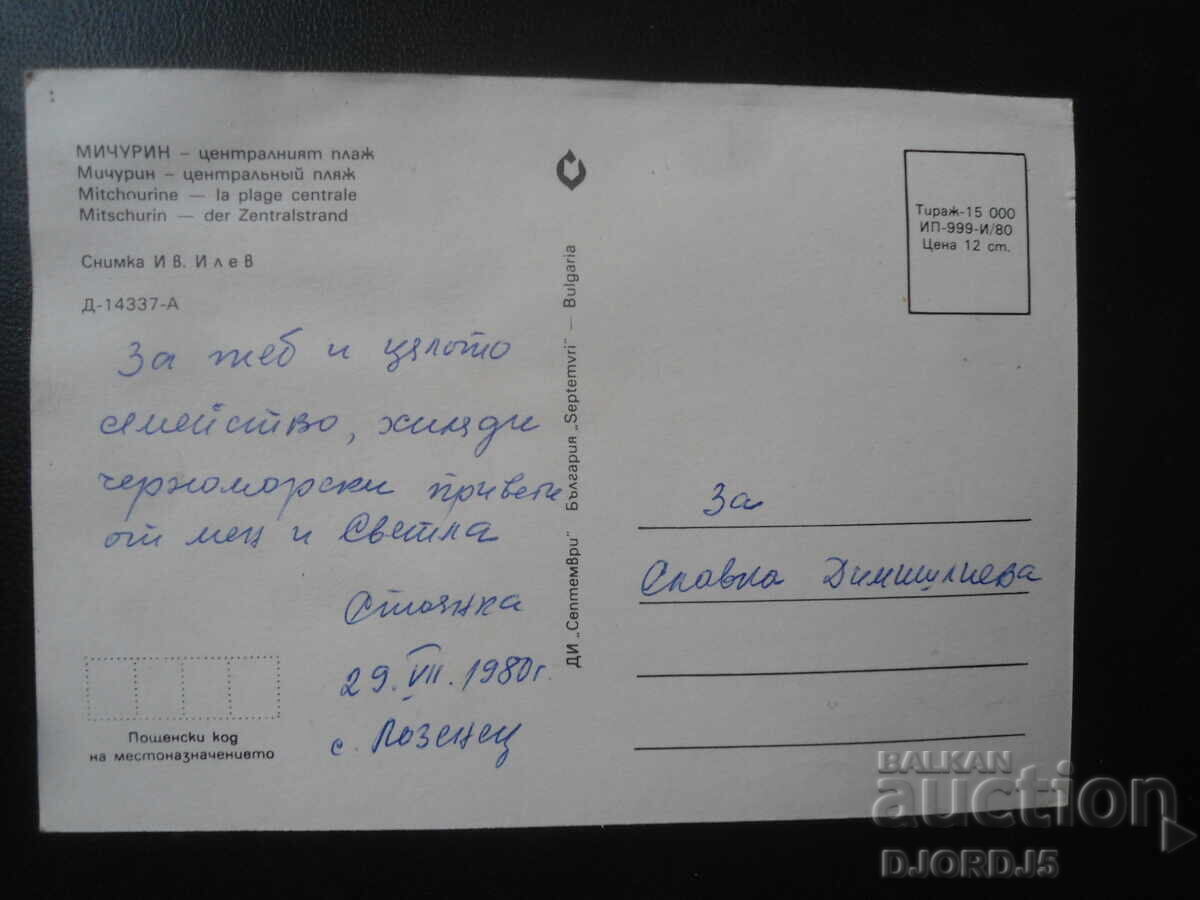 МИЧУРИН – централният плаж
Мичурин – центральный пляж
Mitchourine — la plage centrale
Mitschurin — der Zentralstrand
Снимка Ив. Илев
Д-14337-А
За теб и цялото
семейство, хиляди
черноморски привети
от мен и Светла
Стоянка
29. VII. 1980г.
с. Лозенец
Пощенски код
на местоназначението
ДИ „Септември" България „Septemvri" — Bulgaria
Тираж-15 000
ИП-999-И/80
Цена 12 ст.
За
Славка
BALKAN
auction
DJORDJ5